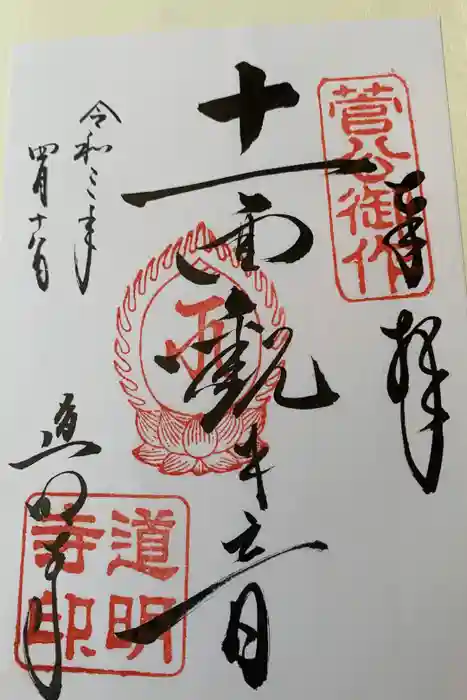 菅公御作
奉拝
十一面観世音
道明寺
令和三年
四月十八日
道明
寺印